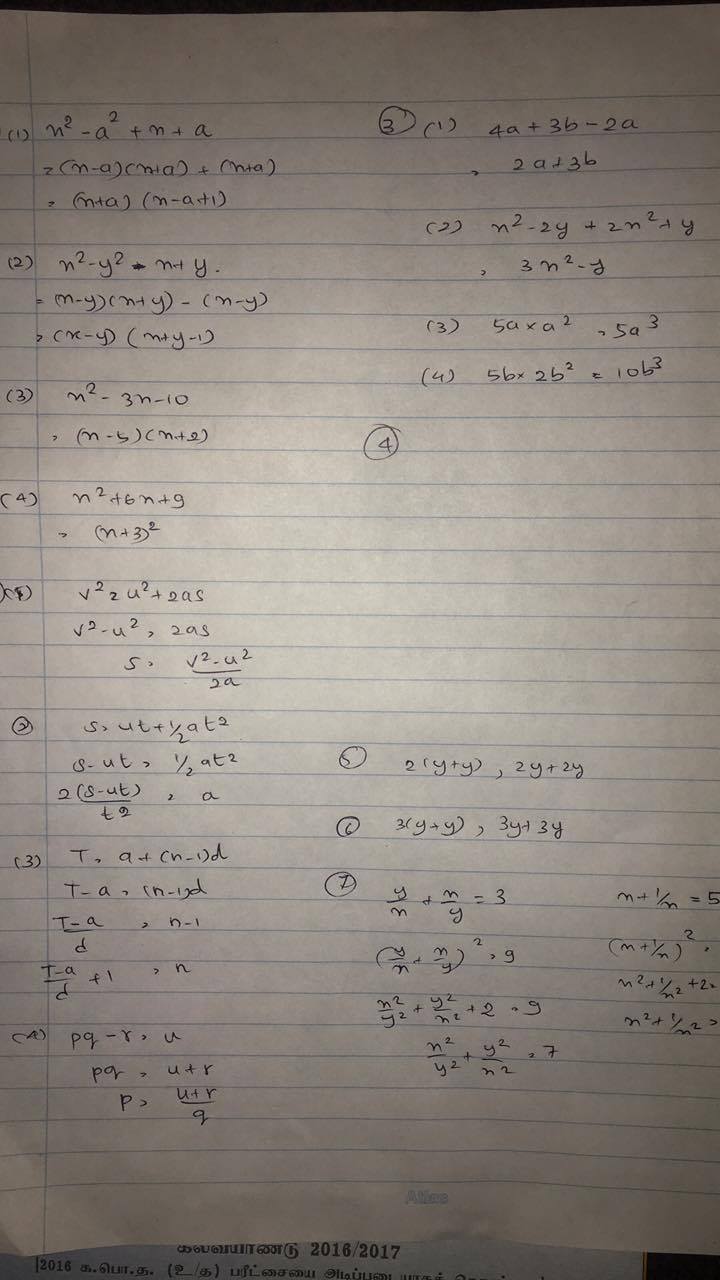 (1) x² - a² + x + a
= (x-a)(x+a) + (x+a)
= (x+a) (x-a+1)
(2) x² - y² - x + y.
= (x-y)(x+y) - (x-y)
= (x-y) (x+y-1)
(3) x² - 3x - 10
= (x-5)(x+2)
(4) x² + 6x + 9
= (x+3)²
v² = u² + 2as
v² - u² = 2as
s = (v² - u²)/2a
② s = ut + 1/2 at²
s - ut = 1/2 at²
2(s-ut)/t² = a
(3) T = a + (n-1)d
T - a = (n-1)d
(T-a)/d = n-1
(T-a)/d + 1 = n
(4) pq - r = u
pq = u + r
p = (u+r)/q
③ (1) 4a + 3b - 2a
= 2a + 3b
(2) x² - 2y + 2x² + y
= 3x² - y
(3) 5a × a² = 5a³
(4) 5b × 2b² = 10b³
④
⑤ 2(y+y) = 2y + 2y
⑥ 3(y+y) = 3y + 3y
⑦ y/x + x/y = 3
(y/x + x/y)² = 9
x²/y² + y²/x² + 2 = 9
x²/y² + y²/x² = 7
x + 1/x = 5
(x + 1/x)² =
x² + 1/x² + 2 =
x² + 1/x² =
Atlas
கல்வியாண்டு 2016/2017
2016 க.பொ.த. (உ/த) பரீட்சையை அடிப்படையாகக்